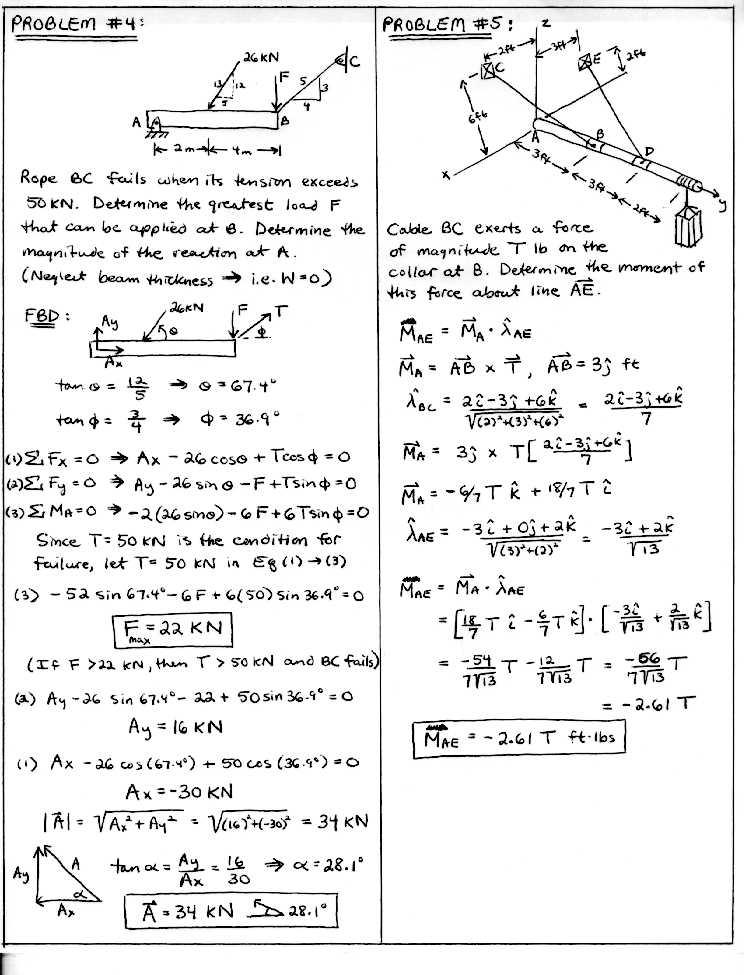 PROBLEM #4:
26 KN
13
12
5
F
5
3
4
C
A
B
2m
4m
Rope BC fails when its tension exceeds
50 KN. Determine the greatest load F
that can be applied at B. Determine the
magnitude of the reaction at A.
(Neglect beam thickness ⇒ i.e. W=0)
FBD:
Ay
26KN
θ
F
T
ϕ
Ax
tan θ = 12/5 ⇒ θ = 67.4°
tan ϕ = 3/4 ⇒ ϕ = 36.9°
(1) ΣFx = 0 ⇒ Ax - 26 cosθ + Tcosϕ = 0
(2) ΣFy = 0 ⇒ Ay - 26 sinθ - F + Tsinϕ = 0
(3) ΣMA = 0 ⇒ -2(26 sinθ) - 6F + 6Tsinϕ = 0
Since T = 50 KN is the condition for
failure, let T = 50 KN in Eq (1) → (3)
(3) - 52 sin 67.4° - 6F + 6(50) sin 36.9° = 0
Fmax = 22 KN
(If F > 22 KN, then T > 50 KN and BC fails)
(2) Ay - 26 sin 67.4° - 22 + 50 sin 36.9° = 0
Ay = 16 KN
(1) Ax - 26 cos (67.4°) + 50 cos (36.9°) = 0
Ax = -30 KN
|A⃗| = √Ax² + Ay² = √(16)² + (-30)² = 34 KN
Ay
A
α
Ax
tan α = Ay/Ax = 16/30 ⇒ α = 28.1°
A⃗ = 34 KN 28.1°
PROBLEM #5:
z
2ft
3ft
2ft
C
E
6ft
A
B
D
x
3ft
3ft
2ft
y
Cable BC exerts a force
of magnitude T lb on the
collar at B. Determine the moment of
this force about line A⃗E⃗.
MAE = M⃗A · λ̂AE
M⃗A = A⃗B⃗ × T⃗, A⃗B⃗ = 3ĵ ft
λ̂BC = 2î-3ĵ+6k̂/√(2)²+(3)²+(6)² = 2î-3ĵ+6k̂/7
M⃗A = 3ĵ × T[2î-3ĵ+6k̂/7]
M⃗A = -6/7 T k̂ + 18/7 T î
λ̂AE = -3î + 0ĵ + 2k̂/√(3)²+(2)² = -3î + 2k̂/√13
MAE = M⃗A · λ̂AE
= [18/7 T î - 6/7 T k̂] · [-3î/√13 + 2/√13 k̂]
= -54/7√13 T - 12/7√13 T = -56/7√13 T
= -2.61 T
MAE = -2.61 T ft·lbs